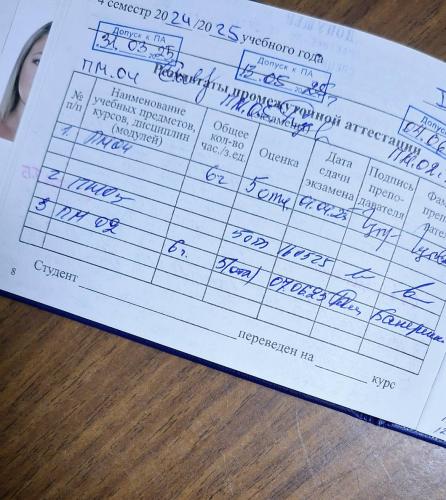 4 семестр 2024/2025 учебного года
Допуск к ПА
31.03.25
ПМ.04
Допуск к ПА
12.05
Допуск
04.06
ПМ.02.
Результаты промежуточной аттестации
№ п/п
Наименование учебных предметов, курсов, дисциплин (модулей)
Общее кол-во час./з.ед.
Оценка
Дата сдачи экзамена
Подпись препо-давателя
1. ПМ04 6ч 5 отл. 01.04.25
2 ПМ05 5отл 160525
3 ПМ 02 6ч. 5(отл) 040625
Студент
переведен на курс
8